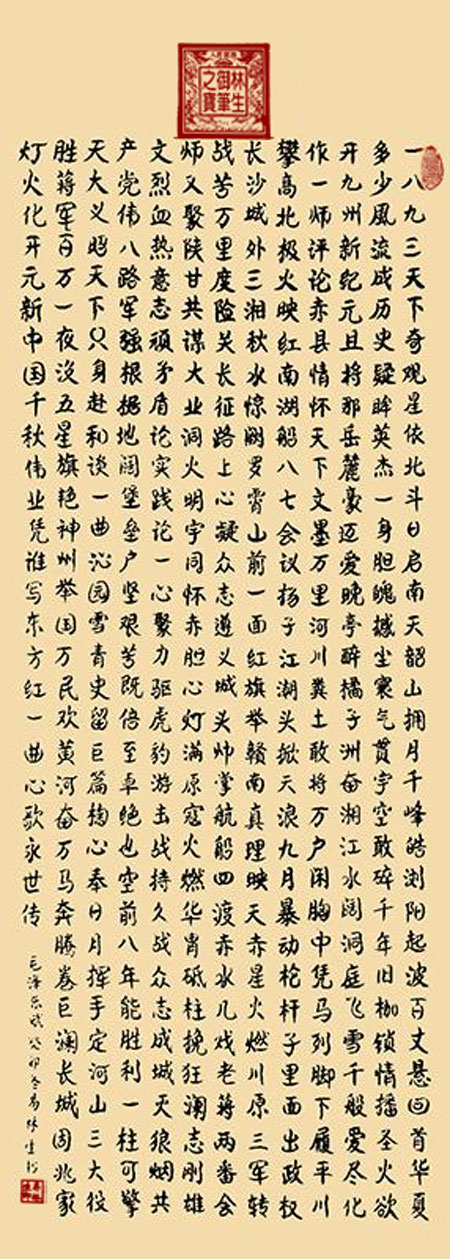 林生御筆之寶
一八九三天下奇观星依北斗日启南天韶山拥月千峰皓浏阳起波百丈悬回首华夏
多少風流成历史疑眸英杰一身胆魄撼尘寰气贯宇空敢碎千年旧枷锁情播圣火欲
开九州新纪元且将那岳麓豪迈爱晚亭醉橘子洲奋湘江水阔洞庭飞雪千般爱尽化
作一师评论赤县情怀天下文墨万里河川粪土敢将万户闲胸中凭马列脚下履平川
攀高北极火映红南湖船八七会议扬子江潮头掀天浪九月暴动枪杆子里面出政权
长沙城外三湘秋水惊罗霄山前一面红旗举赣南真理映天赤星火燃川原三军转
战苦万里度险关长征路上心凝众志遵义城头帅掌航船四渡赤水几戏老蒋两番会
师又聚陕甘共谋大业洞火明宇同怀赤胆心灯满原寇火燃华胄砥柱挽狂澜志刚雄
文烈血热意志顽矛盾论实践论一心聚力驱虎豹游击战持久战众志成城灭狼烟共
产党伟八路军强根据地阔堡垒户坚艰苦既倍至卓绝也空前八年能胜利一柱可擎
天大义昭天下只身赴和谈一曲沁园雪青史留巨篇掬心奉日月挥手定河山三大役
胜蒋军百万一夜没五星旗艳神州举国万民欢黄河奋万马奔腾卷巨澜长城固兆家
灯火化开元新中国千秋伟业凭谁写东方红一曲心歌永世传
毛泽东 癸卯冬易林生